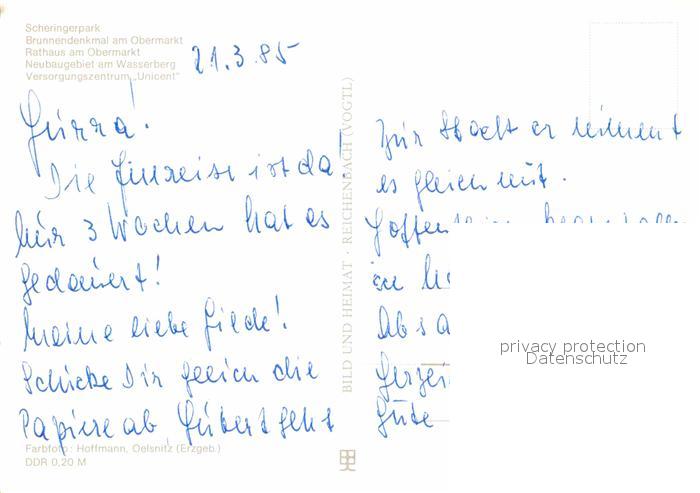 Scheringerpark
Brunnendenkmal am Obermarkt
Rathaus am Obermarkt
Neubaugebiet am Wasserberg
Versorgungszentrum „Unicent"
21.3.85
Hurra!
Die Einreise ist da!
Nur 3 Wochen hat es
gedauert!
Meine liebe Hilde!
Schicke Dir gleich die
Papiere ab, Hubert geht
Farbfoto: Hoffmann, Oelsnitz (Erzgeb.)
DDR 0,20 M
BILD UND HEIMAT · REICHENBACH (VOGTL)
Zur Stadt er nimmt
es gleich mit.
Hoffen
zu
Absa
Herzei
Gute
privacy protection
Datenschutz